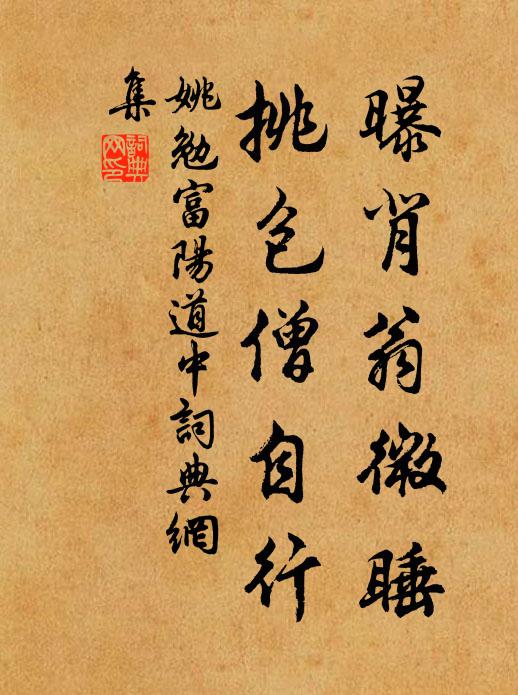 曝背翁微睡
挑包僧自行
姚勉富陽道中詞典網
集
詞典
网印